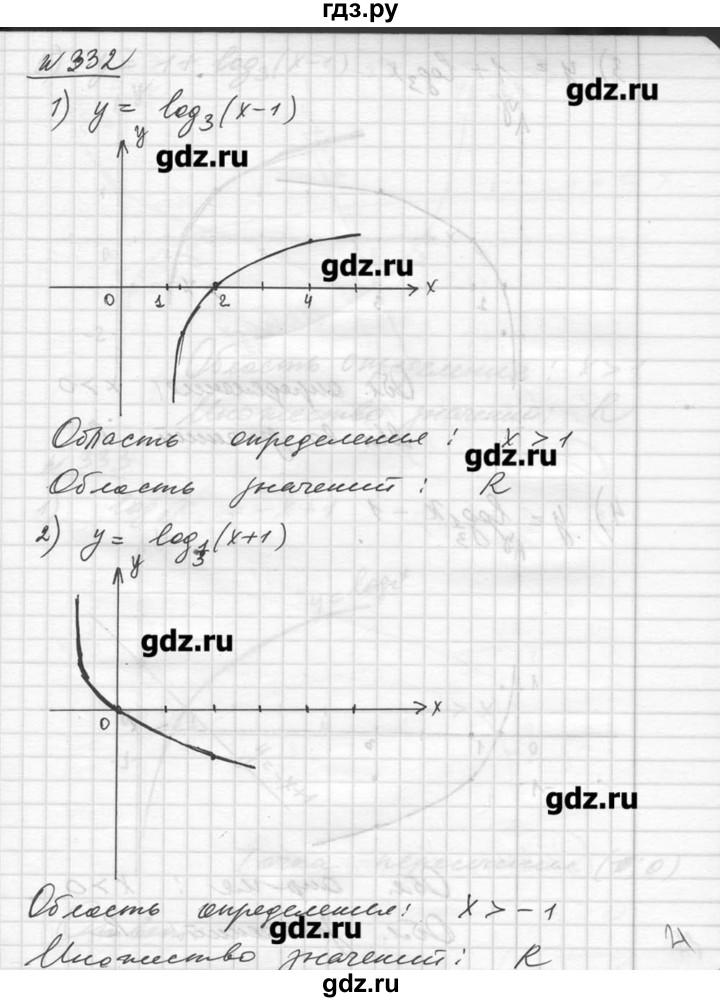 гдз.ру
№332
1) y = log₃(x-1)
gdz.ru
y
gdz.ru
gdz.ru
0 1 2 4 x
Область определения: x > 1
gdz.ru
Область значений: R
2) y = log₁/₃(x+1)
y
gdz.ru
0 x
gdz.ru
Область определения: x > -1
gdz.ru
Множество значений: R
гдз.ру